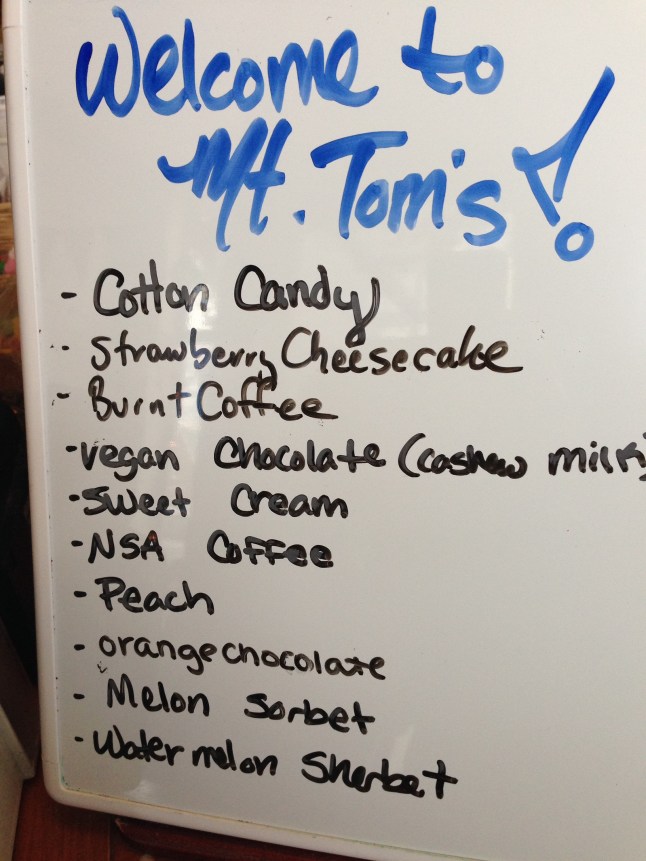 Welcome to
Mt. Tom's!
- Cotton Candy
- Strawberry Cheesecake
- Burnt Coffee
- vegan chocolate (cashew milk)
- sweet cream
- NSA Coffee
- Peach
- orange chocolate
- Melon Sorbet
- Watermelon Sherbet